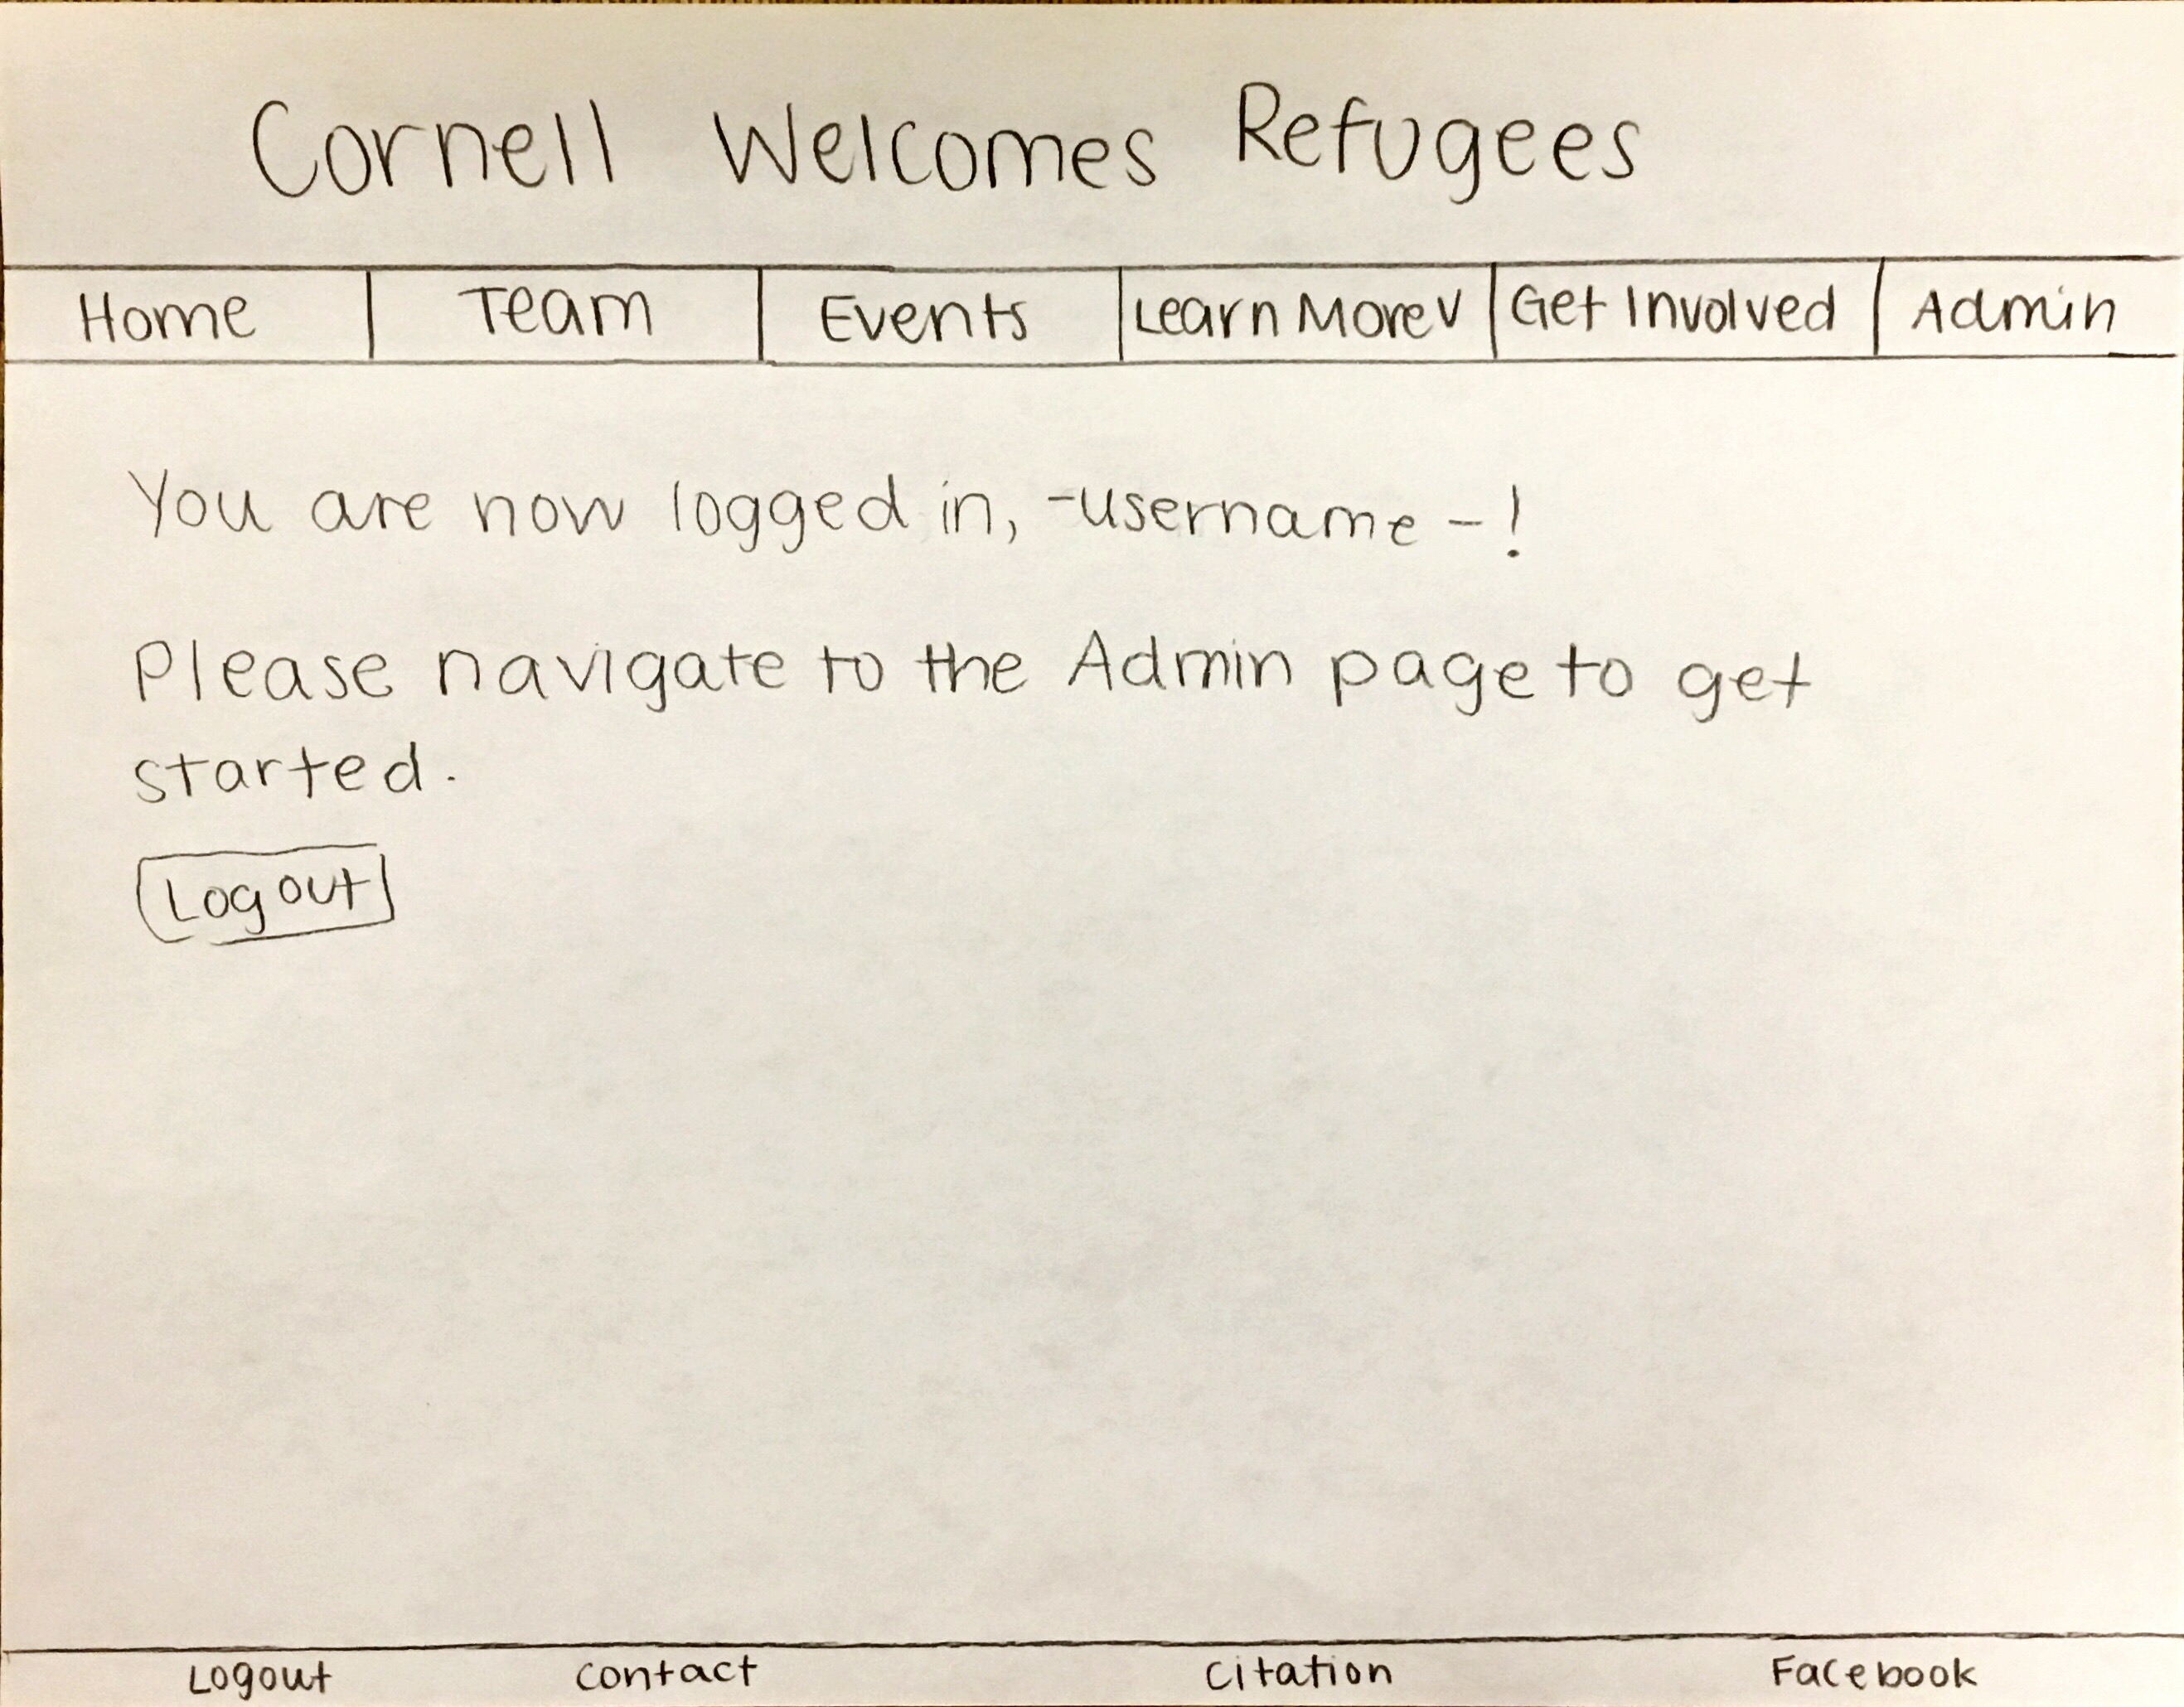 Cornell Welcomes Refugees
Home Team Events Learn More v Get Involved Admin
You are now logged in, -username-!
Please navigate to the Admin page to get
started.
Logout
Logout Contact Citation Facebook